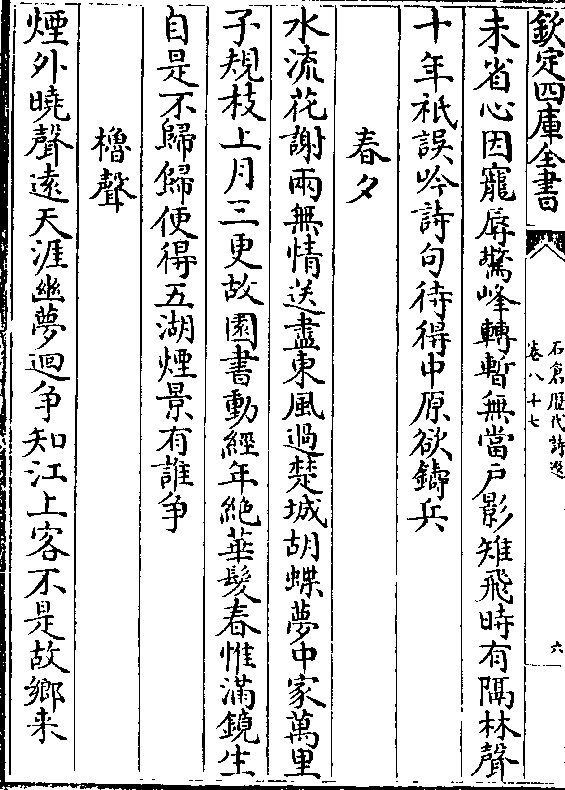 欽定四庫全書
石倉歴代詩選
卷八十七
六
未省心因寵辱驚峰轉暫無當戶影雉飛時有隔林聲
十年祇誤吟詩句待得中原欲鑄兵
春夕
水流花謝兩無情送盡東風過楚城胡蝶夢中家萬里
子規枝上月三更故園書動經年絶華髮春惟滿鏡生
自是不歸歸便得五湖煙景有誰爭
櫓聲
煙外曉聲遠天涯幽夢迴爭知江上客不是故鄉来